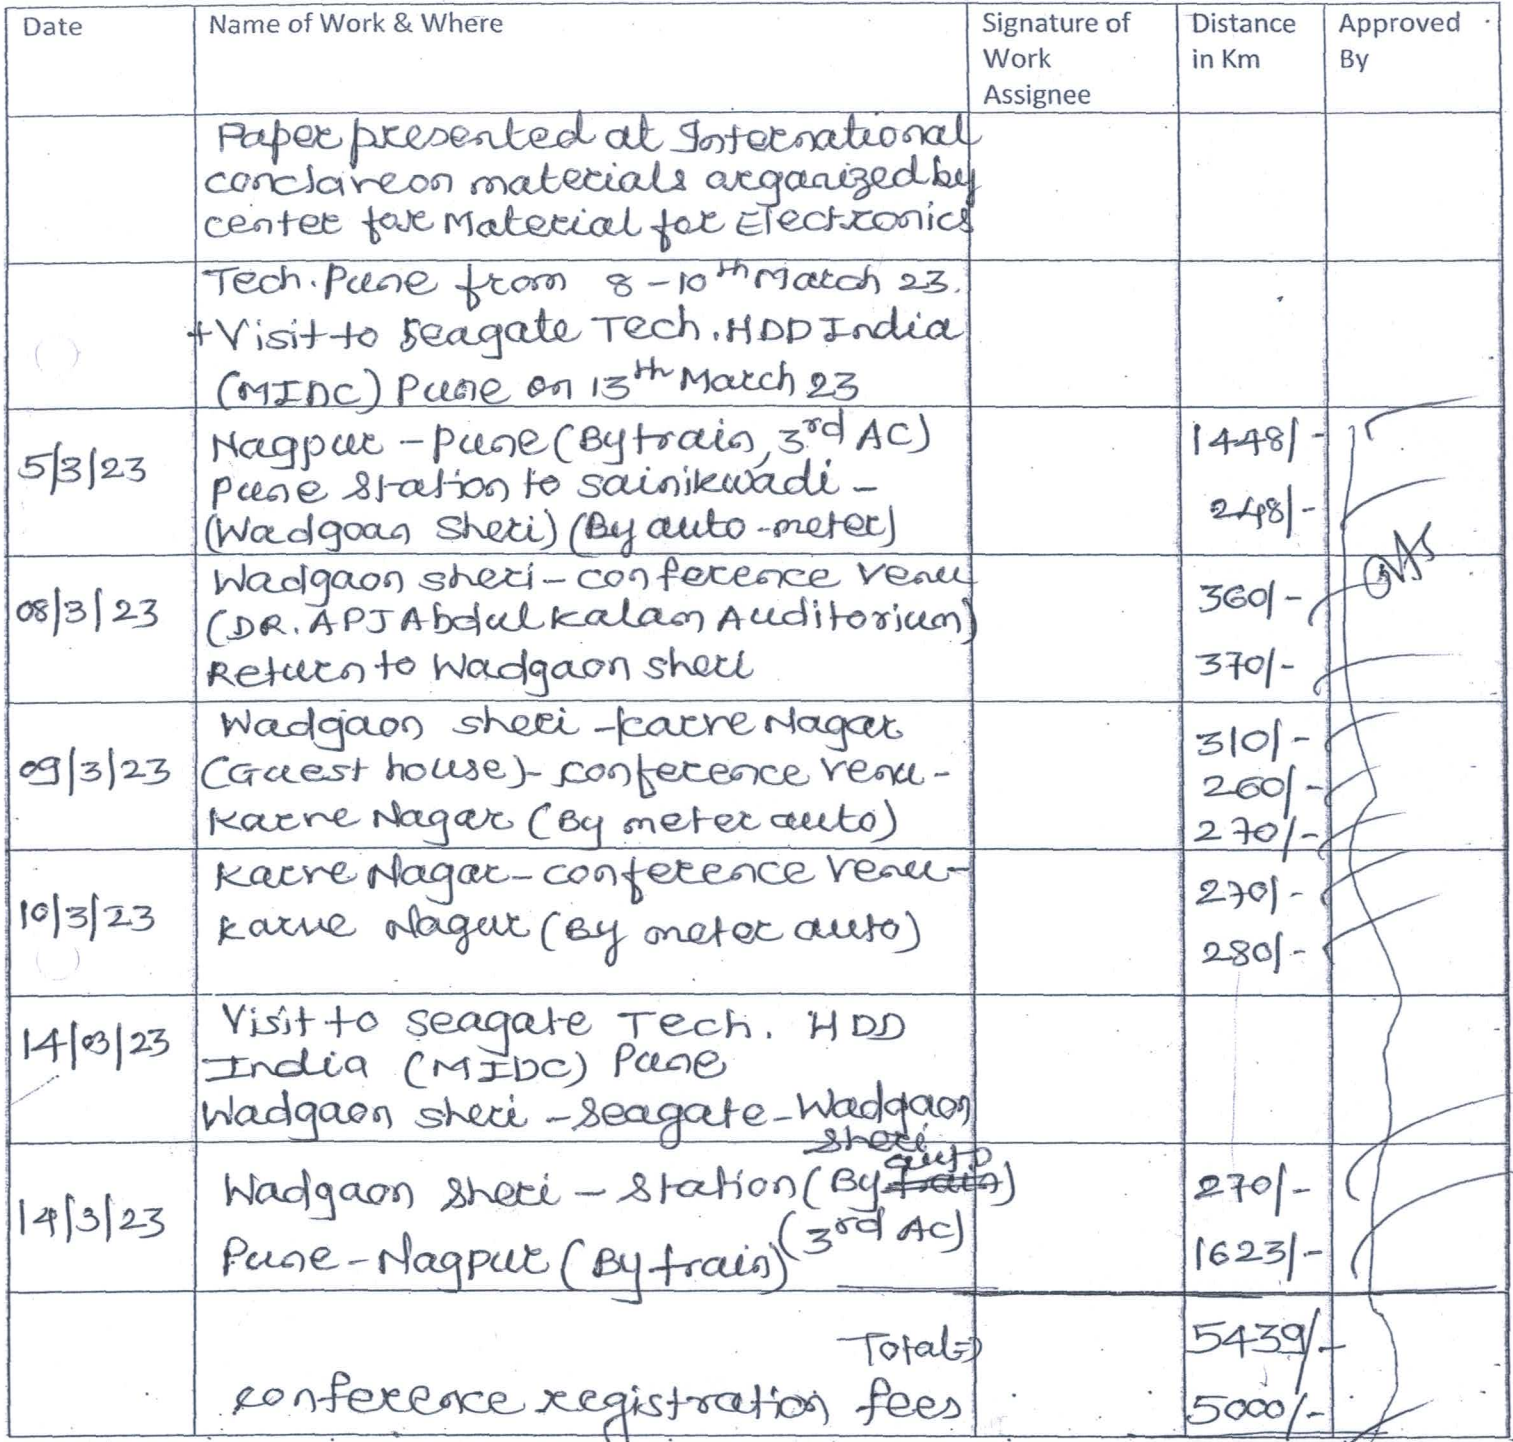 Date Name of Work & Where Signature of Work Assignee Distance in Km Approved By
Paper presented at International
conclave on materials organized by
center for Material for Electronics
Tech. Pune from 8-10th March 23.
+ Visit to Seagate Tech. HDD India
(MIDC) Pune on 13th March 23
5/3/23 Nagpur - Pune (By train, 3rd AC) 1448/-
Pune Station to Sainikwadi -
(Wadgoan Sheri) (By auto-meter) 248/-
08/3/23 Wadgaon sheri - conference venu 360/-
(DR. APJ Abdul Kalam Auditorium)
Return to Wadgaon sheri 370/-
09/3/23 Wadgaon sheri - Karve Nagar 310/-
(Guest house) - conference venu - 260/-
Karve Nagar (By meter auto) 270/-
10/3/23 Karve Nagar - conference venu - 270/-
Karve Nagar (By meter auto) 280/-
14/03/23 Visit to Seagate Tech. HDD
India (MIDC) Pune
Wadgaon sheri - Seagate - Wadgaon
sheri
14/3/23 Wadgaon Sheri - Station (By train auto) 270/-
Pune - Nagpur (By train) (3rd AC) 1623/-
Total => 5439/-
conference registration fees 5000/-